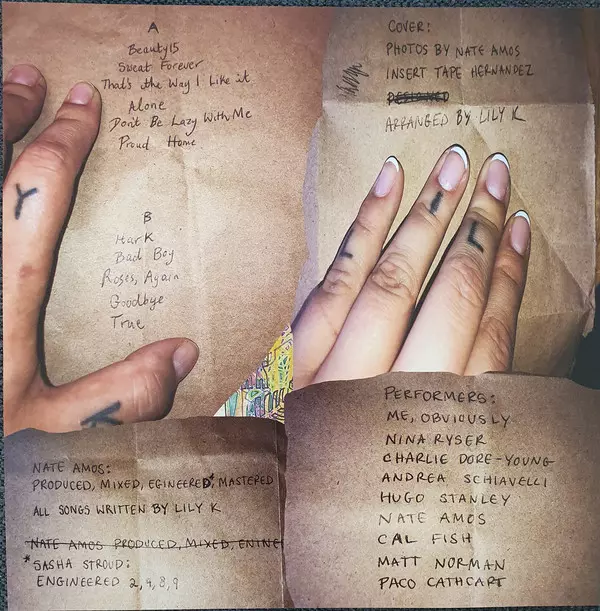 A
Beauty15
Sweat Forever
That's the Way I Like it
Alone
Don't Be Lazy With Me
Proud Home
B
HarK
Bad Boy
Roses, Again
Goodbye
True
Y
K
COVER:
PHOTOS BY NATE AMOS
INSERT TAPE HERNANDEZ
ARRANGED BY LILY K
L I L
NATE AMOS:
PRODUCED, MIXED, EGINEERED*, MASTERED
ALL SONGS WRITTEN BY LILY K
NATE AMOS PRODUCED, MIXED, ENINE
*SASHA STROUD:
ENGINEERED 2,4,8,9
PERFORMERS:
ME, OBVIOUSLY
NINA RYSER
CHARLIE DORE-YOUNG
ANDREA SCHIAVELLI
HUGO STANLEY
NATE AMOS
CAL FISH
MATT NORMAN
PACO CATHCART